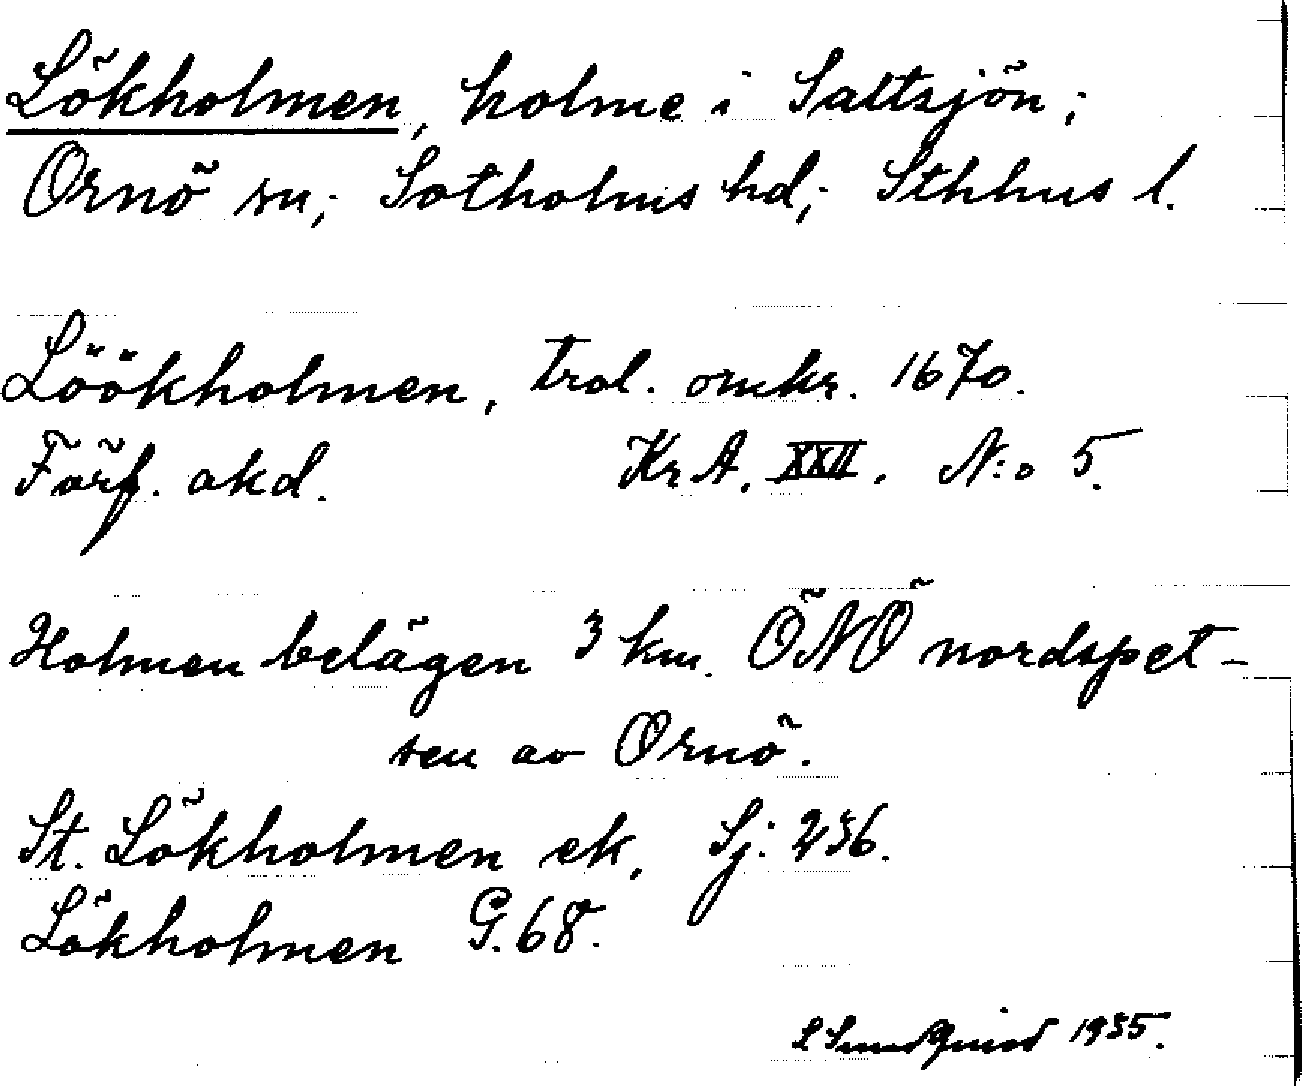 Lökholmen, holme i Saltsjön;
Ornö sn; Sotholms hd; Sthlms l.
Löökholmen, trol. omkr. 1670.
Förf. okd. Kr. A. XXII. N:o 5.
Holmen belägen 3 km. ÖNÖ nordspet-
sen av Ornö.
St. Lökholmen ek. Sj: 236.
Lökholmen G. 68.
L Sundquist 1935.